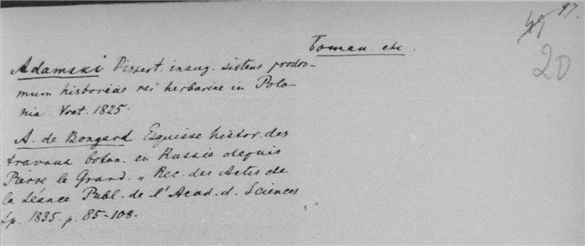 97
49
20
Toman. etc.
Adamski Dissert. inaug. sistens prodro-
mum historiae rei herbariae in Polo-
nia Vrat. 1825.
A. de Bongard Esquisse histor. des
travaux botan. en Russie depuis
Pierre le Grand. „ Rec. des Actes de
la Séance Publ. de l'Acad. d. Sciences
Sp. 1835. p. 85-108.